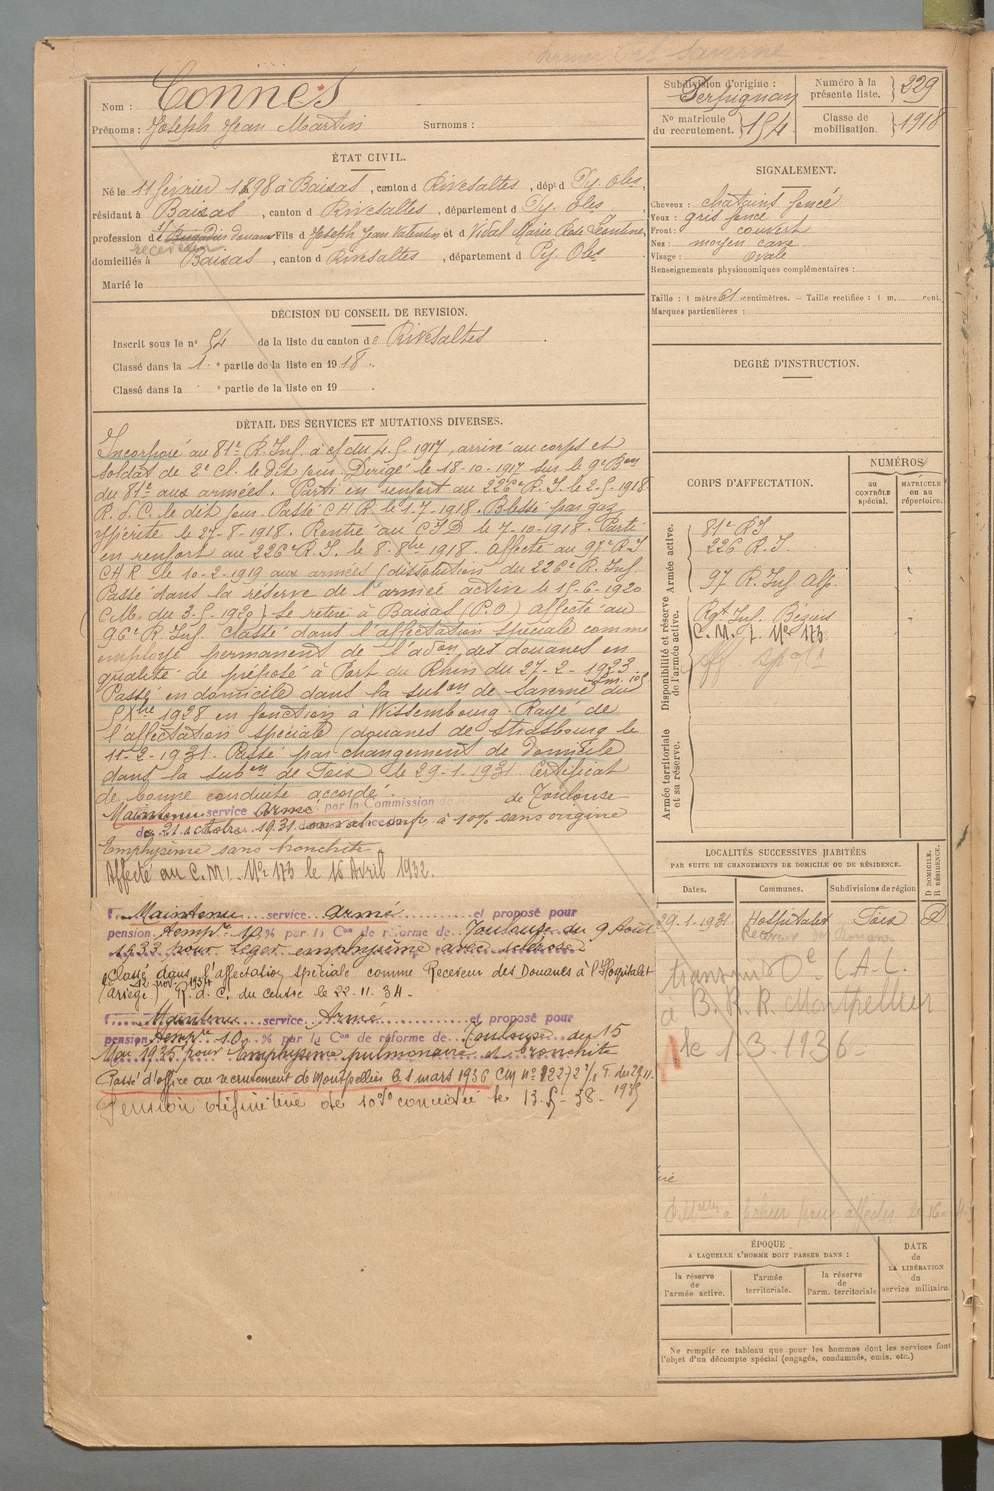 Nom : Connes
Prénoms : Joseph Jean Martin Surnoms :
ÉTAT CIVIL.
Né le 11 février 1898 à Baixas, canton d Rivesaltes, dépt d Py. Oles,
résidant à Baixas, canton d Rivesaltes, département d Py. Oles
profession d douanes Fils d Joseph Jean Valentin et d Vidal Marie Rose
receveur
domiciliés à Baixas, canton d Rivesaltes, département d Py. Oles
Marié le
DÉCISION DU CONSEIL DE REVISION.
Inscrit sous le n° 54 de la liste du canton de Rivesaltes
Classé dans la 1e partie de la liste en 1918.
Classé dans la e partie de la liste en 19
DÉTAIL DES SERVICES ET MUTATIONS DIVERSES.
Incorporé au 81e R. Inf. à c/ du 4.5.1917, arrivé au corps et
soldat de 2e Cl. le dit jour. Dirigé le 18-10-1917 sur le 9e Bon
du 81e aux armées. Parti en renfort au 226e R.I. le 2-5-1918
R. d. C. le dit jour. Passé C H R le 1-7-1918. Blessé par gaz
ypérite le 27-8-1918. Rentré au C I D le 7-10-1918. Parti
en renfort au 226e R.I. le 8-8bre 1918. Affecté au 97e R.I
CHR le 10-2-1919 aux armées (dissolution du 226e R. Inf.
Passé dans la réserve de l'armée active le 15-6-1920
(C.M. du 3-5-1920) Se retire à Baixas (P.O) affecté au
96e R. Inf. Classé dans l'affectation spéciale comme
employé permanent de l'adon des douanes en
qualité de préposé à Port du Rhin du 27-2-1923
Passé en domicile dans la subon de Saverne du
5 Xbre 1928 en fonction à Wissembourg. Rayé de
l'affectation spéciale (douanes de Strasbourg le
11-2-1931. Passé par changement de domicile
dans la subon de Foix le 29-1-1931. Certificat
de bonne conduite accordé.
Maintenu service Armé par la Commission de de Toulouse
du 21 octobre 1931 à 10% sans origine
Emphysème sans bronchite
Affecté au C.M.I. No 173 le 16 Avril 1932.
Maintenu service armé et proposé pour
pension tempre 10 % par la Con de réforme de Toulouse du 9 Août
1933 pour léger emphysème avec sclérose
Classé dans l'affectation spéciale comme Receveur des Douanes à l'Hospitalet
le 12 nov. 1934
(Ariège) R. d. C. du centre le 22-11-34-
Maintenu service Armé et proposé pour
pension tempre 10 % par la Con de réforme de Toulouse du 15
Mai 1935 pour Emphysème pulmonaire et bronchite
Passé d'office au recrutement de Montpellier le 1 mars 1936 CM no 12272 T du 29.11.
1935
Pension définitive de 10% concédée le 13-5-38-
Subdivision d'origine : Perpignan
Numéro à la présente liste. 229
No matricule du recrutement. 154
Classe de mobilisation. 1918
SIGNALEMENT.
Cheveux : chatains foncé
Yeux : gris foncé
Front : couvert
Nez : moyen cave
Visage : ovale
Renseignements physionomiques complémentaires :
Taille : 1 mètre 61 centimètres. — Taille rectifiée : 1 m. cent.
Marques particulières :
DEGRÉ D'INSTRUCTION.
CORPS D'AFFECTATION.
NUMÉROS
au CONTRÔLE spécial.
MATRICULE ou au répertoire.
Armée active.
81e R I
226 R. I.
97 R. Inf. Alp.
Disponibilité et réserve de l'armée active.
Rgt Inf. Béziers
C. M. I. No 173
Aff spéle
Armée territoriale et sa réserve.
LOCALITÉS SUCCESSIVES HABITÉES
PAR SUITE DE CHANGEMENTS DE DOMICILE OU DE RÉSIDENCE.
Dates. Communes. Subdivisions de région
D DOMICILE. R RÉSIDENCE.
29.1.1931 Hospitalet Foix D
transmis
à B. R. R. Montpellier
le 1.3.1936-
ÉPOQUE
A LAQUELLE L'HOMME DOIT PASSER DANS :
DATE de LA LIBÉRATION du service militaire.
la réserve de l'armée active.
l'armée territoriale.
la réserve de l'arm. territoriale
Ne remplir ce tableau que pour les hommes dont les services font
l'objet d'un décompte spécial (engagés, condamnés, omis, etc.)